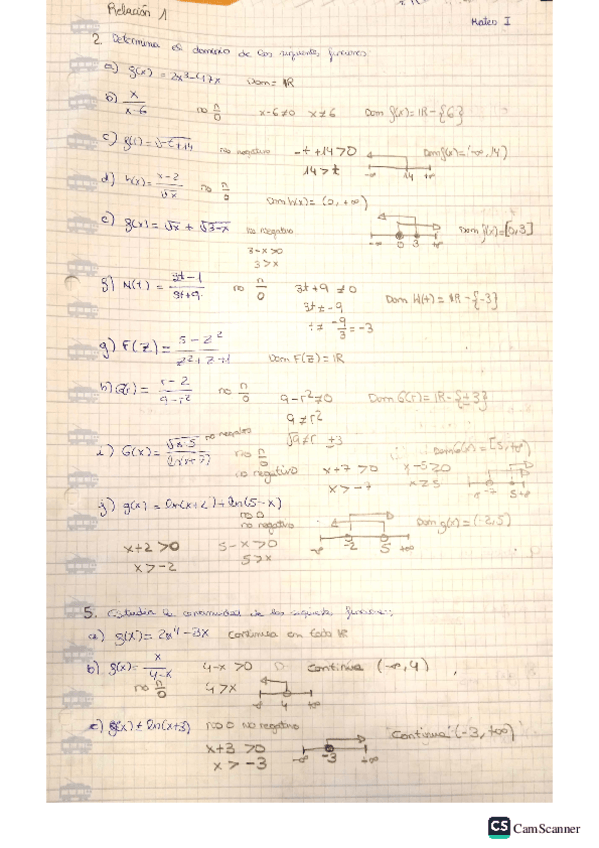 Relación 1
Mates I
2. Determina el dominio de las siguientes funciones:
a) f(x) = 2x³-47x Dom = ℝ
b) x/(x-6) no n/0 x-6≠0 x≠6 Dom f(x) = ℝ-{6}
c) no negativo -t+14>0 14>t -∞ 14 +∞ Dom f(x) = (-∞,14)
d) h(x) = (x-2)/√x no n/0 Dom h(x) = (0,+∞)
e) g(x) = √x + √(3-x) no negativo 3-x>0 3>x -∞ 0 3 +∞ Dom f(x) = [0,3]
f) N(t) = no n/0 3t+9≠0 3t≠-9 t≠ -9/3 = -3 Dom N(t) = ℝ-{-3}
g) F(z) = Dom F(z) = ℝ
h) G(r) = (r-2)/(9-r²) no n/0 9-r²≠0 9≠r² √9≠r ±3 Dom G(r) = ℝ-{±3}
i) G(x) = no negativo no n/0 no negativo x+7>0 x>-7 x-5≥0 x≥5 -7 5 +∞ Dom G(x) = [5,+∞)
j) g(x) = ln(x+2)+ln(5-x) no 0 no negativo -∞ -2 5 +∞ Dom g(x) = (-2,5)
x+2>0 5-x>0
x>-2 5>x
5. Estudia la continuidad de las siguientes funciones:
a) f(x) = 2x⁴-3x continua en todo ℝ
b) f(x) = x/√(4-x) 4-x>0 continua (-∞,4)
no n/0 4>x 4 +∞
c) ln(x+3) no 0 no negativo
x+3>0 -∞ -3 +∞ continua (-3,+∞)
x>-3
CS CamScanner